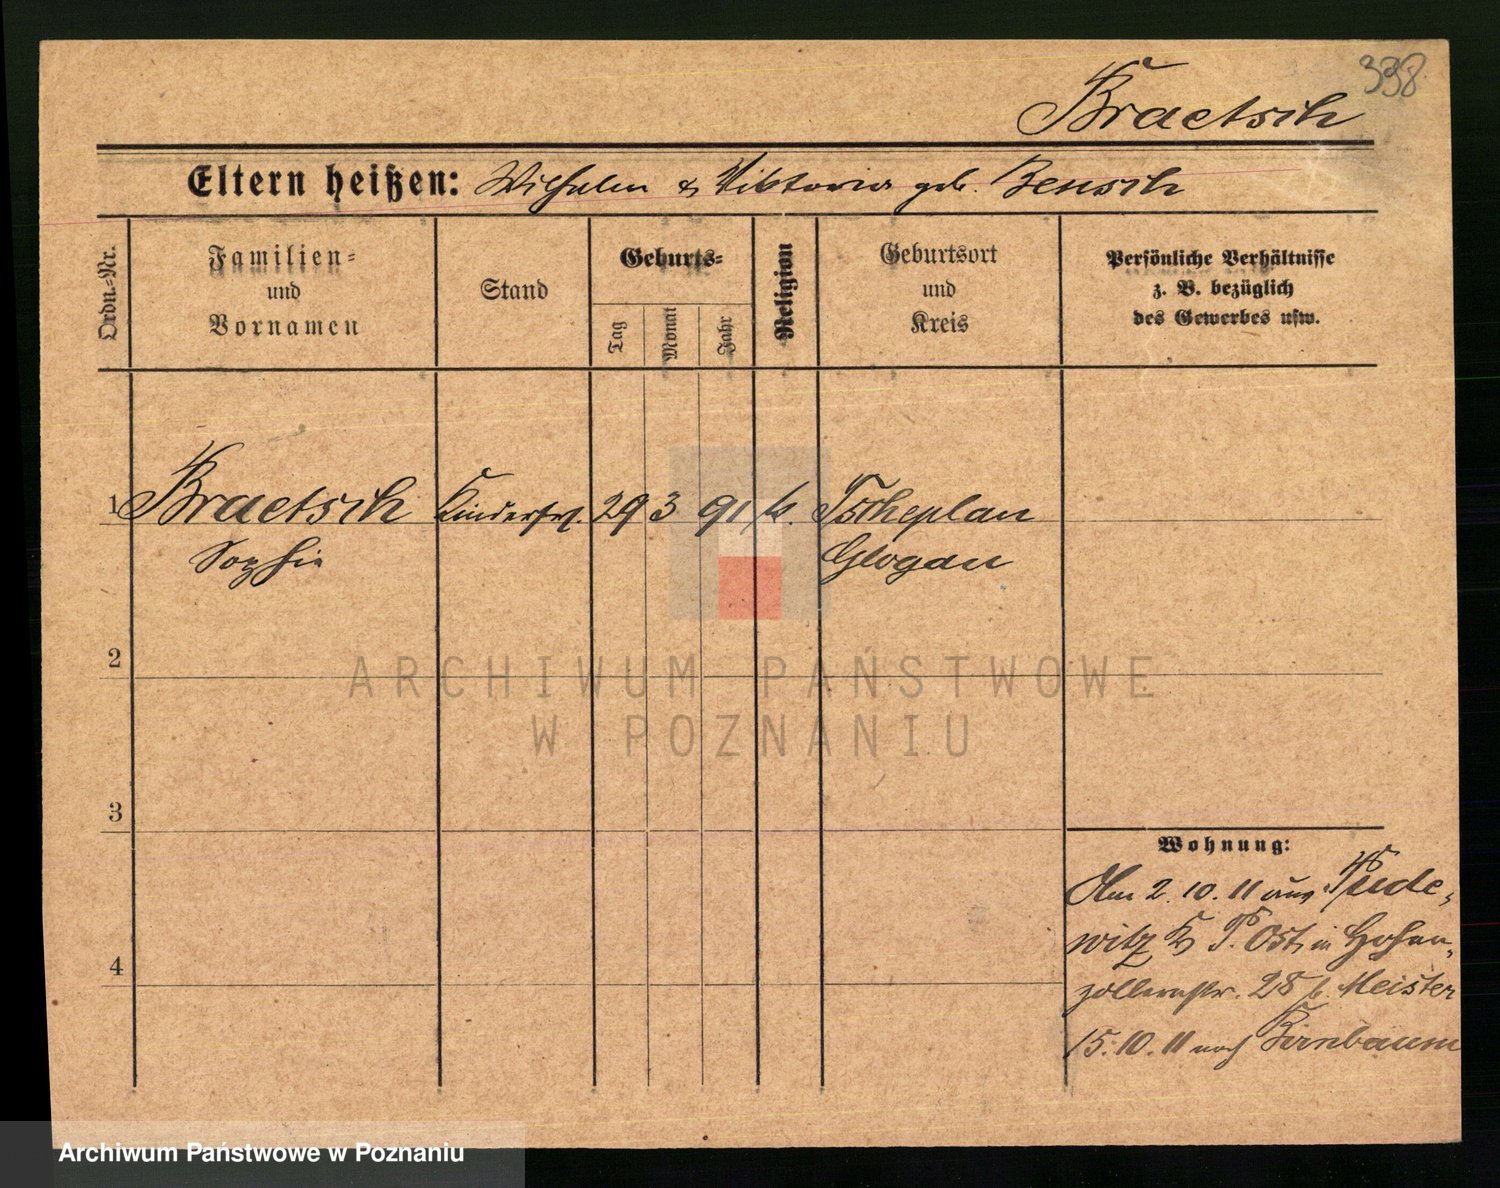 338
Braetsch
Eltern heißen: Wilhelm & Viktoria geb. Bensch
Ordn.-Nr.
Familien- und Vornamen
Stand
Geburts-
Tag
Monat
Jahr
Religion
Geburtsort und Kreis
Persönliche Verhältnisse
z. B. bezüglich
des Gewerbes usw.
1 Braetsch Kinderfrl. 29 3 91 k. Tscheplau
Sophie Glogau
2
ARCHIWUM PAŃSTWOWE
W POZNANIU
3
Wohnung:
Am 2.10.11 aus Pude-
witz Kr P. Ost, in Hohen-
zollernstr. 28 b. Meister
15.10.11 nach Birnbaum
4
Archiwum Państwowe w Poznaniu